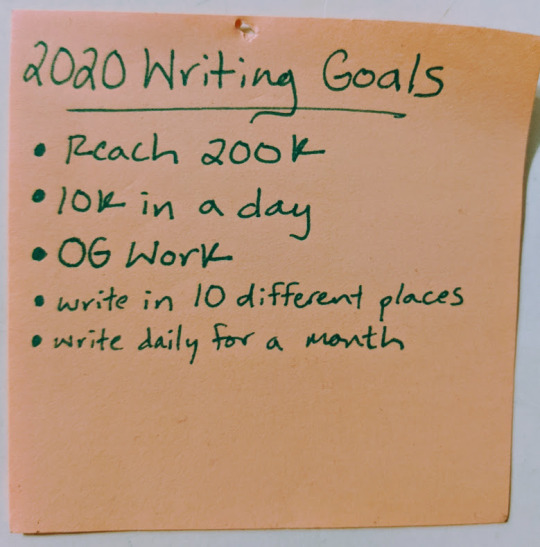 2020 Writing Goals
• Reach 200K
• 10K in a day
• OG Work
• write in 10 different places
• write daily for a month